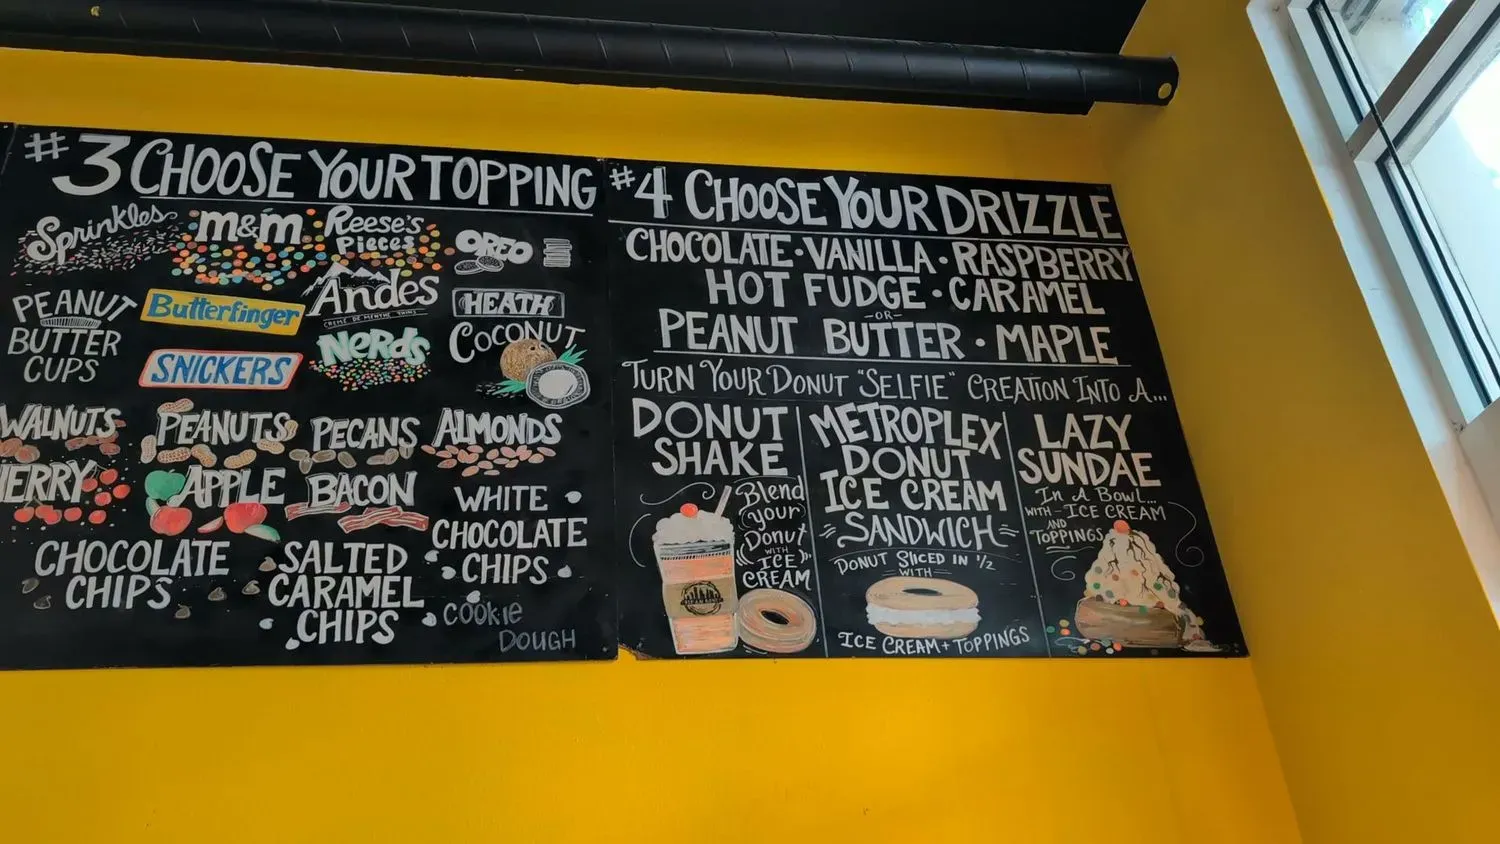 #3 CHOOSE YOUR TOPPING
Sprinkles
m&m
Reese's
Pieces
OREO
PEANUT
BUTTER
CUPS
Butterfinger
Andes
CRÈME DE MENTHE THINS
HEATH
SNICKERS
NeRds
COCONUT
WALNUTS
PEANUTS
PECANS
ALMONDS
APPLE
BACON
WHITE
CHOCOLATE
CHIPS
CHOCOLATE
CHIPS
SALTED
CARAMEL
CHIPS
COOKie
DOUGH
#4 CHOOSE YOUR DRIZZLE
CHOCOLATE · VANILLA · RASPBERRY
HOT FUDGE · CARAMEL
-OR-
PEANUT BUTTER · MAPLE
TURN YOUR DONUT "SELFIE" CREATION INTO A...
DONUT
SHAKE
Blend
your
Donut
WITH
ICE
CREAM
METROPLEX
DONUT
ICE CREAM
SANDWICH
DONUT SLICED IN 1/2
WITH
ICE CREAM + TOPPINGS
LAZY
SUNDAE
IN A BOWL...
WITH - ICE CREAM
AND
TOPPINGS